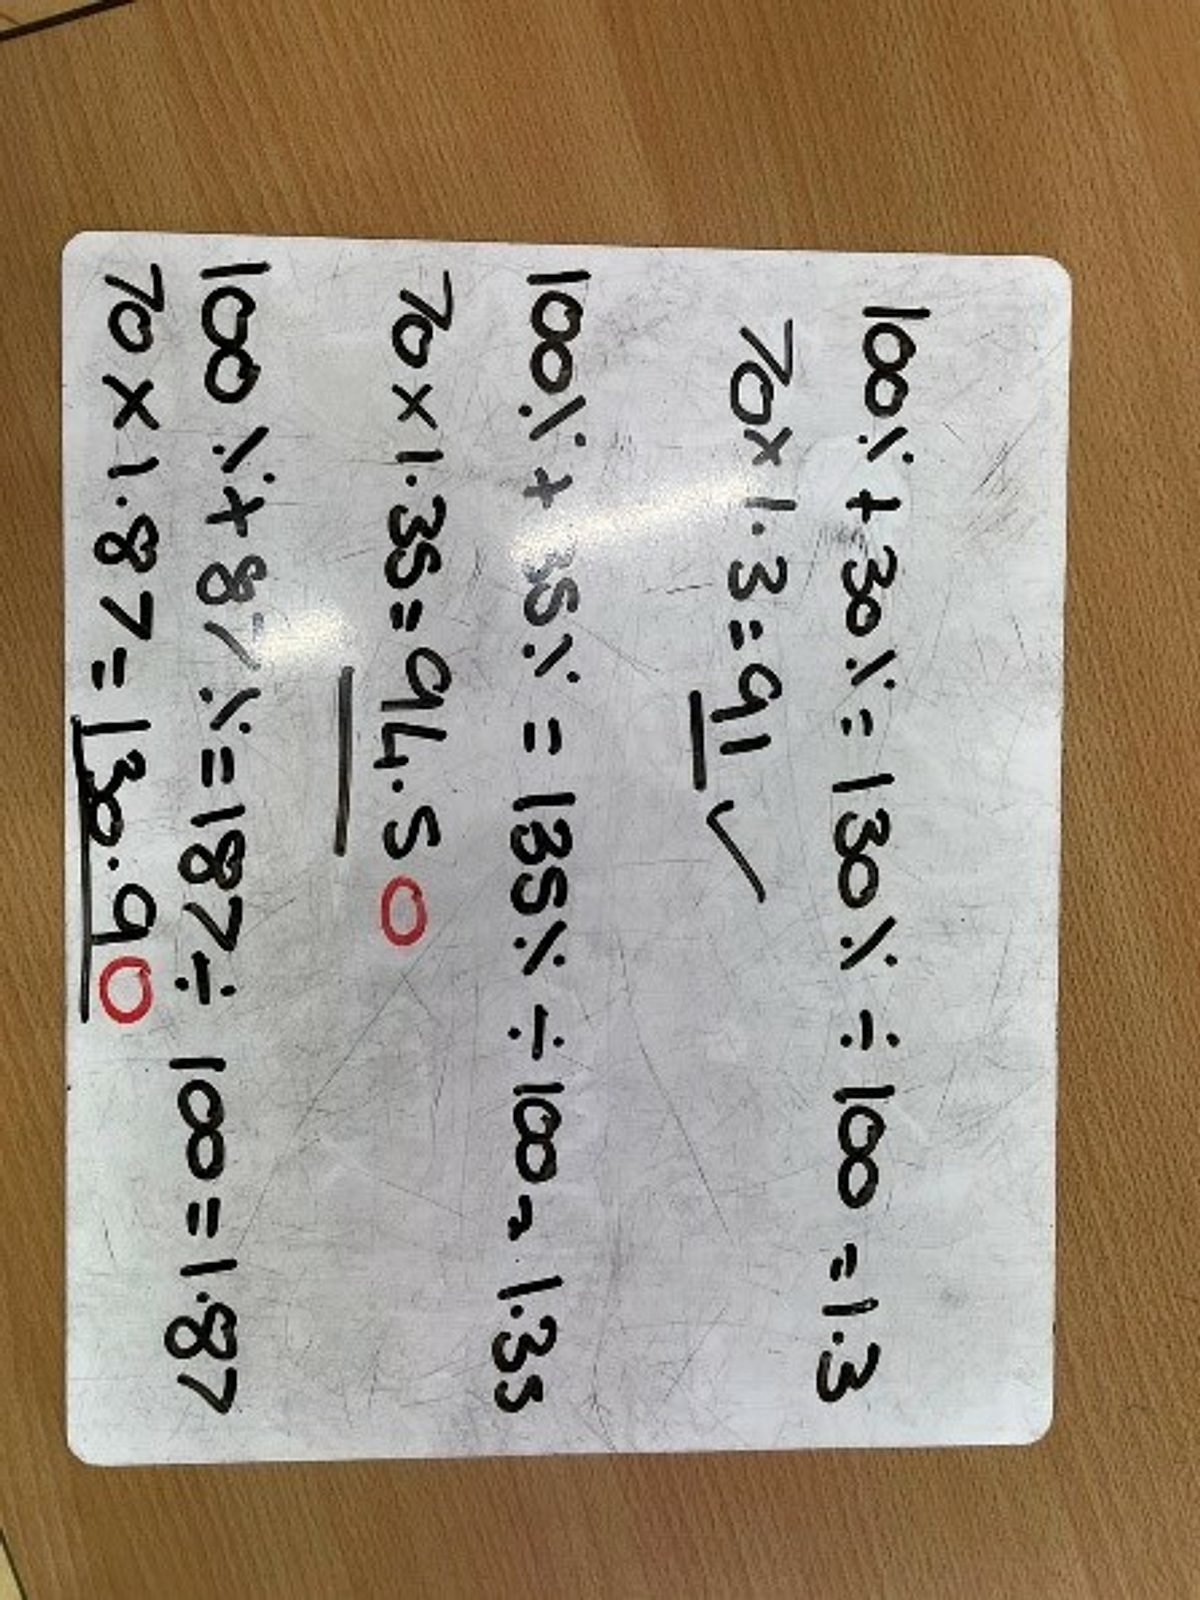 100% + 30% = 130% ÷ 100 = 1.3
70 × 1.3 = 91 ✓
100% + 35% = 135% ÷ 100 = 1.35
70 × 1.35 = 94.50
100% + 87% = 187 ÷ 100 = 1.87
70 × 1.87 = 130.90